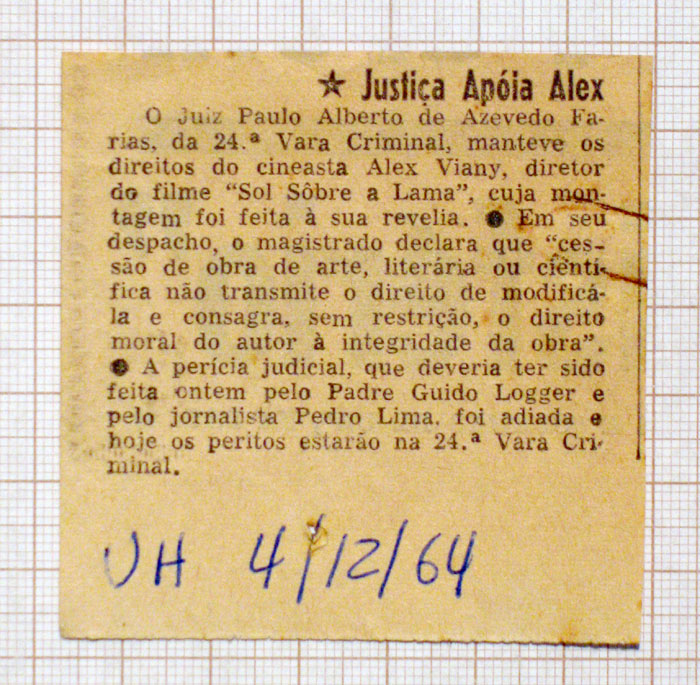 ★ Justiça Apóia Alex
O Juiz Paulo Alberto de Azevedo Fa-
rias, da 24.ª Vara Criminal, manteve os
direitos do cineasta Alex Viany, diretor
do filme “Sol Sôbre a Lama”, cuja mon-
tagem foi feita à sua revelia. ● Em seu
despacho, o magistrado declara que “ces-
são de obra de arte, literária ou cientí-
fica não transmite o direito de modificá-
la e consagra, sem restrição, o direito
moral do autor à integridade da obra”.
● A perícia judicial, que deveria ter sido
feita ontem pelo Padre Guido Logger e
pelo jornalista Pedro Lima, foi adiada e
hoje os peritos estarão na 24.ª Vara Cri-
minal.
UH 4/12/64